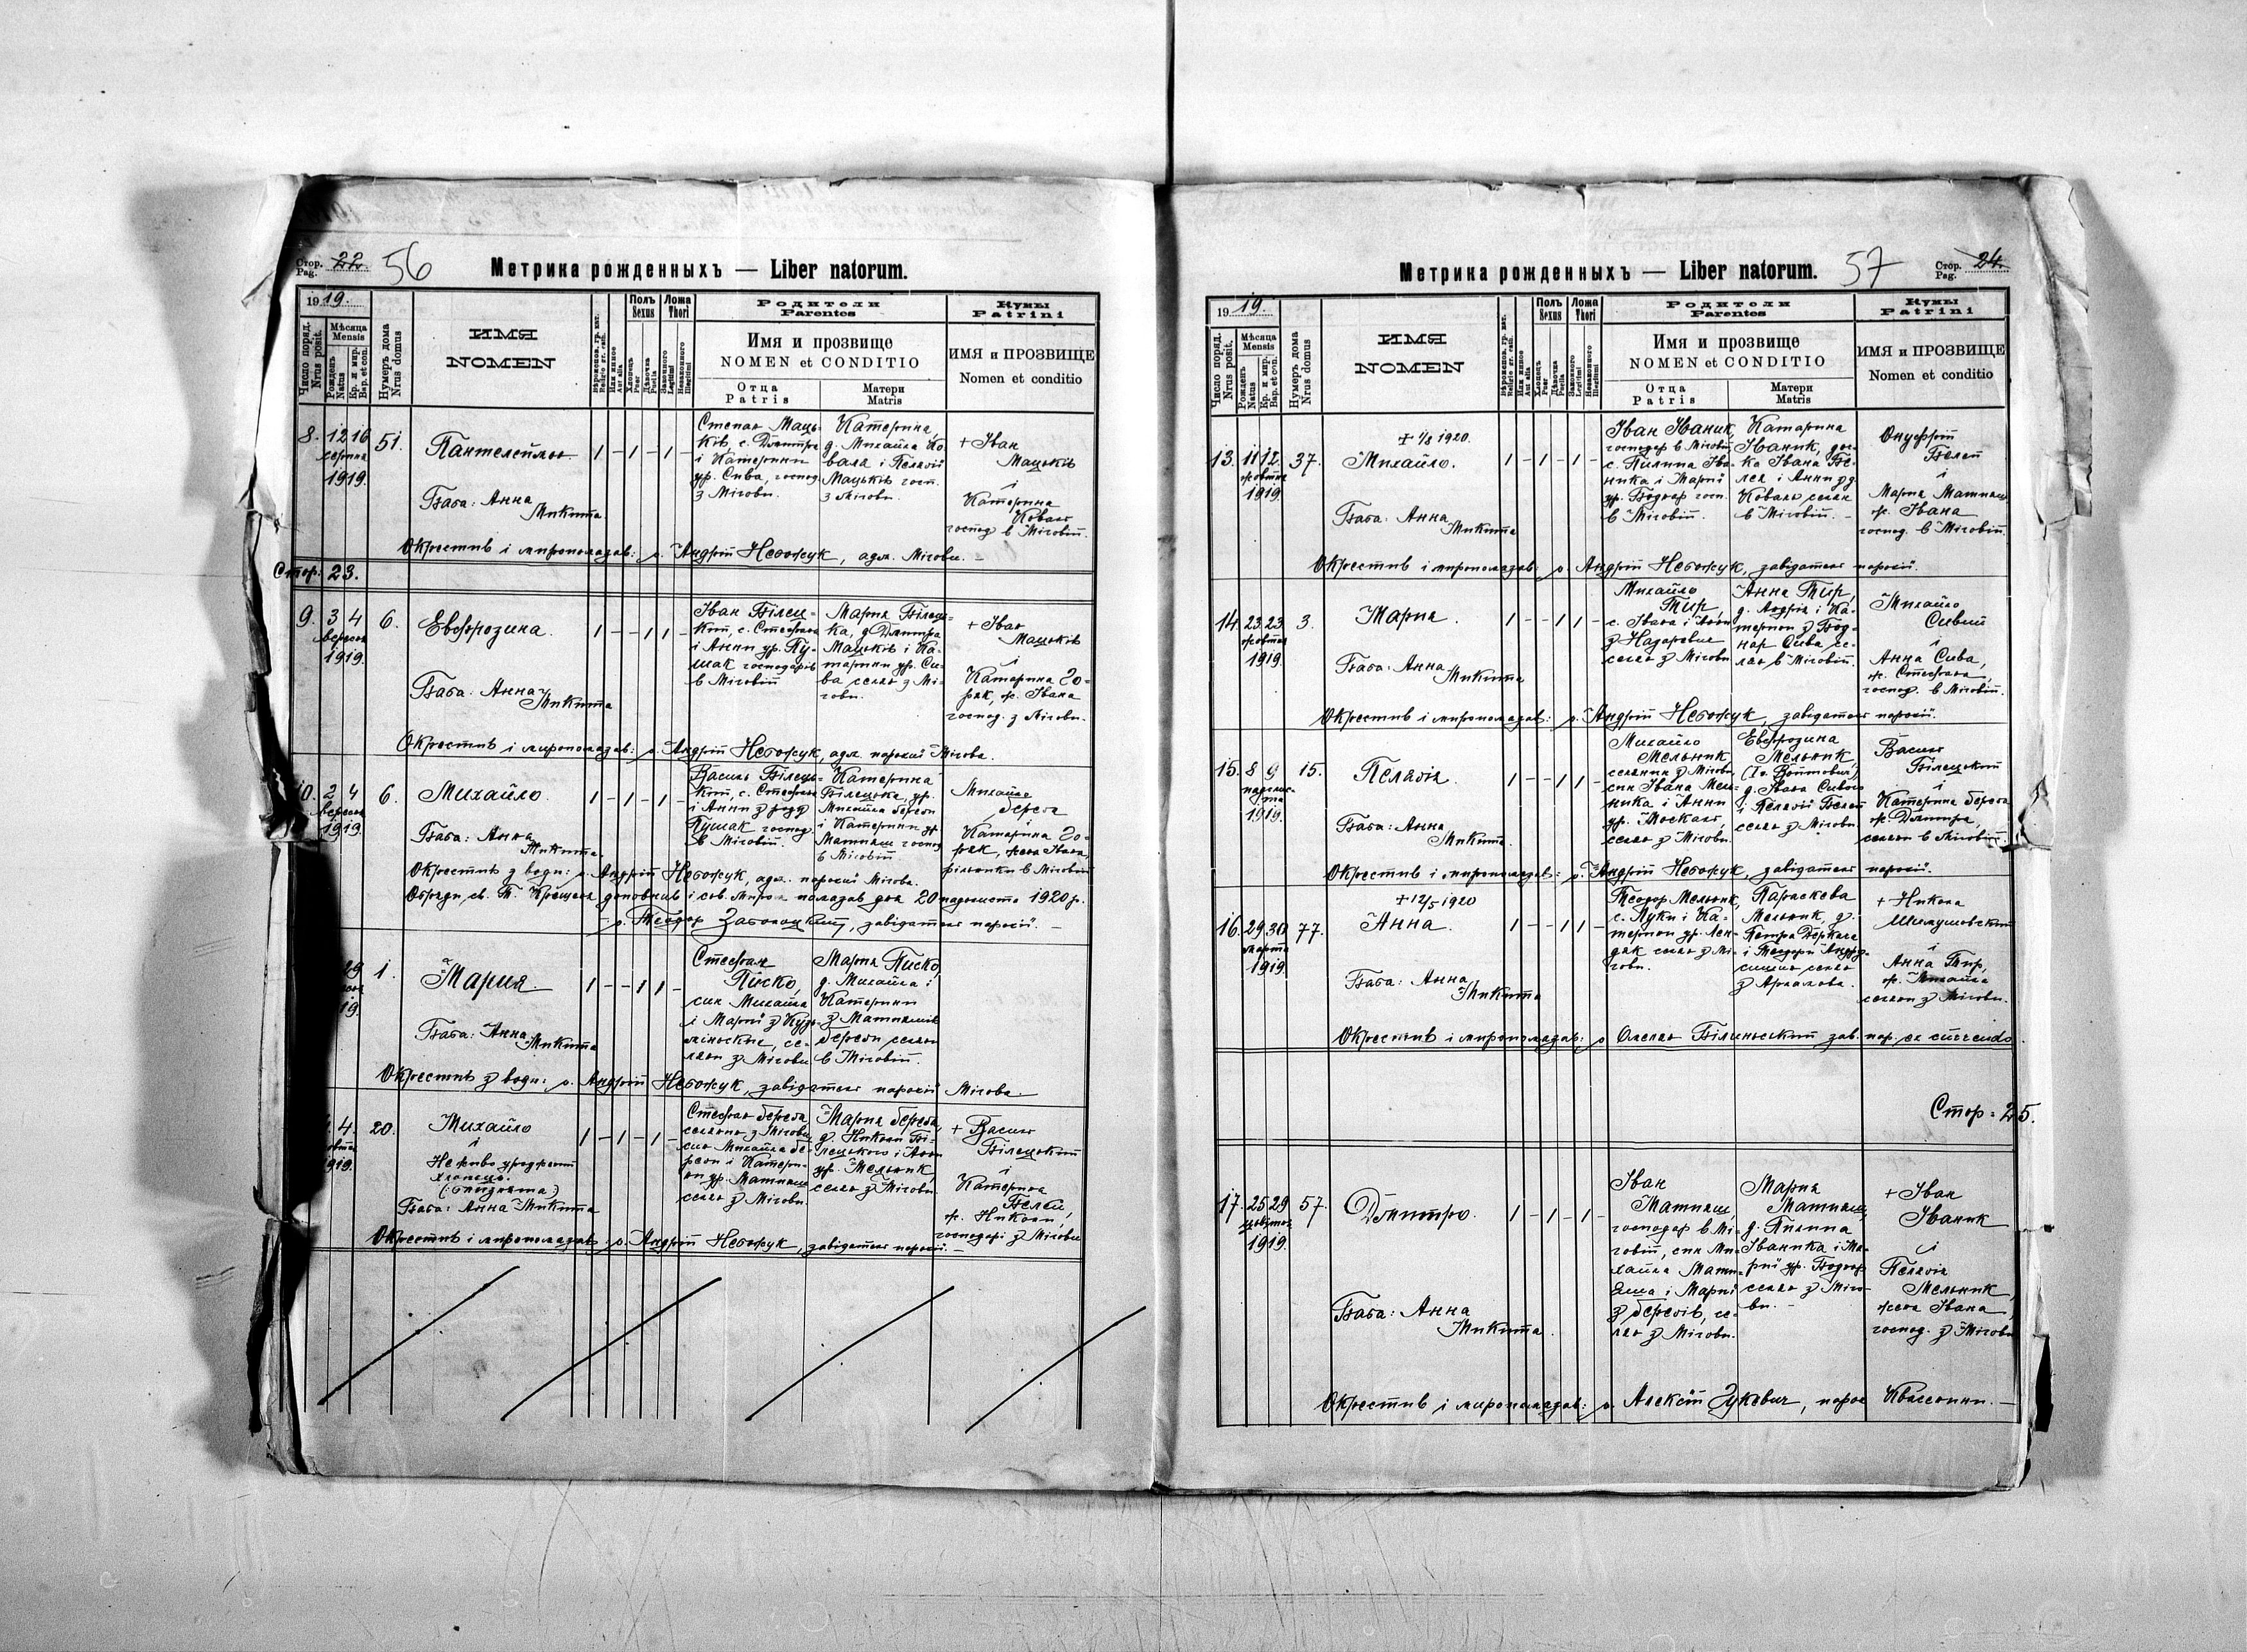 Стор. Pag. 22. 56
Метрика рожденныхъ — Liber natorum.
1919.
Число поряд. Nrus posit.
Мѣсяца Mensis
Рожденъ Natus
Кр. и мир. Bap. et con.
Нумеръ дома Nrus domus
ИМЯ
NOMEN
Полъ Sexus
Хлопець Puer
Дѣвочка Puella
Ложа Thori
Законного Legitimi
Незаконного Illegitimi
Родители
Parentes
Имя и прозвище
NOMEN et CONDITIO
Отца Patris
Матери Matris
Кумы
Patrini
ИМЯ и ПРОЗВИЩЕ
Nomen et conditio
8. 12 16 серпня 1919. 51.
Пантелеймон
Баба: Анна Микита
Степан Маць-
ків, с. Дмитра
і Катерини
ур. Сива, господ
з Мігови.
Катерина,
д. Михайла Ко
валя і Пелагії
Мацьків госп.
з Мігови.
+ Іван
Мацьків
і
Катерина
Коваль
господ в Міговій.
Окрестив і миропомазав: о. Андрій Небожук, адм. Мігови. —
Стор. 23.
9. 3 4 вересня 1919. 6.
Евфрозина.
Баба: Анна Микита
Іван Білец-
кий, с. Стефана
і Анни ур. Пу-
шак господарів
в Міговій
Мария Білець-
ка, д Дмитра
Мацьків і Ка-
тарини ур. Си-
ва селян з Мі-
гови.
+ Іван
Мацьків
і
Катарина Го-
рак, ж. Івана
господ. з Мігови.
Окрестив і миропомазав: о. Андрій Небожук, адм парохії Мігова.
10. 2 4 вересня 1919 6.
Михайло
Баба: Анна Микита
Василь Білець-
кий, с. Стефана
і Анни з роду
Пушак господ.
в Міговій.
Катерина
Білецька, ур.
Михайла Береза
і Катерини ур
Матияш господ
в Міговій
Михайло
Береза
і
Катарина Го-
рак, жена Івана,
рільники в Міговій
Окрестив з води: о. Андрій Небожук, адм. парохії Мігова.
Обряди, св. Т. Крещеня доповнив і св. Миром помазав дня 20 падолиста 1920 р.
— о. Теодор Заболоцкий, завідатель парохії. —
29 1.
Мария.
Баба: Анна Микита
Стефан
Писко,
син Михайла
і Марії з Кузь-
міньских, се-
лян з Мігови
Мария Писко,
д. Михайла і
Катерини
з Матияшів
Берези селян
в Міговій.
Окрестив з води: о. Андрій Небожук, завідатель парохії Мігова.
4. 1919. 20.
Михайло
і
Неживо уроджений
хлопець.
(: близнята)
Баба: Анна Микита
Стефан Береза
селянин з Мігови
син Михайла Бе-
рези і Катери-
ни ур. Матияш
селян з Мігови
Мария Береза,
д. Николи Бі-
лецького і Анни
ур. Мельник,
селян з Мігови.
+ Василь
Білецкий
і
Катерина
Белей,
ж. Николи,
господарі з Мігови
Окрестив і миропомазав: о. Андрій Небожук, завідатель парохії. —
Метрика рожденныхъ — Liber natorum. 57 Стор. Pag. 24.
1919.
Число поряд. Nrus posit.
Мѣсяца Mensis
Рожденъ Natus
Кр. и мир. Bap. et con.
Нумеръ дома Nrus domus
ИМЯ
NOMEN
Полъ Sexus
Хлопець Puer
Дѣвочка Puella
Ложа Thori
Законного Legitimi
Незаконного Illegitimi
Родители
Parentes
Имя и прозвище
NOMEN et CONDITIO
Отца Patris
Матери Matris
Кумы
Patrini
ИМЯ и ПРОЗВИЩЕ
Nomen et conditio
13. 11 12. жовтня 1919. 37.
+ 1/8 1920.
Михайло.
Баба: Анна Микита
Іван Іваник,
господар в Міговій
с. Пилипа Іва-
ника і Марії
ур. Боднар госп.
в Міговій.
Катарина
Іваник, доч-
ка Івана Бе-
лея і Анни уд
Коваль селян
в Міговій. —
Онуфрій
Белей
і
Мария Матияш
ж. Івана
господ. в Міговій.
Окрестив і миропомазав: о. Андрій Небожук, завідатель парохії.
14. 23 23 жовтня 1919. 3.
Мария.
Баба: Анна Микита
Михайло
Тир,
с. Івана і Анни
з Назаревич
селян з Мігови
Анна Тир,
д. Андрія і Ка-
терини з Бод-
нар Сива се-
лян в Міговій.
Михайло
Сивий
і
Анна Сива,
ж. Стефана,
господ. в Міговій.
Окрестив і миропомазав: о. Андрій Небожук, завідатель парохії.
15. 8 9 падолиста 1919. 15.
Пелагія.
Баба: Анна Микита.
Михайло
Мельник
селянин з Мігови,
син Івана Мель-
ника і Анни
ур. Москаль,
селян з Мігови.
Евфрозина
Мельник,
(Iо Войтович)
д. Івана Сивого
і Пелагії Белей
селян з Мігови
Василь
Білецький
і
Катерина Береза
ж. Дмитра,
селяни в Міговій.
Окрестив і миропомазав: о. Андрій Небожук, завідатель парохії.
16. 29 30 марта 1919. 77.
+ 12/5 1920
Анна.
Баба: Анна Микита
Теодор Мельник,
с. Луки і Ка-
терини ур. Лен-
дяк селян з Мі-
гови.
Параскева
Мельник, д.
Петра Деркача
і Теодори Андру-
сишин селян
з Арламова.
+ Никола
Шимушовский
і
Анна Тир,
ж. Михайла
селяни з Мігови.
Окрестив і миропомазав: о Омелян Білиньский зав. пар. ex currendo.
Стор. 25.
17. 25 29 1919. 57.
Дмитро.
Баба: Анна Микита.
Іван
Матияш,
господар в Мі-
говій, син Ми-
хайла Мати-
яша і Марії
з Березів, се-
лян з Мігови.
Мария
Матияш,
д. Пилипа
Іваника і Ма-
рії ур. Боднар
селян з Міго-
ви. —
+ Іван
Іваник
і
Пелагія
Мельник,
жена Івана
господ. з Мігови
Окрестив і миропомазав: о. Алексій Зукевич, парох Квасенини. —